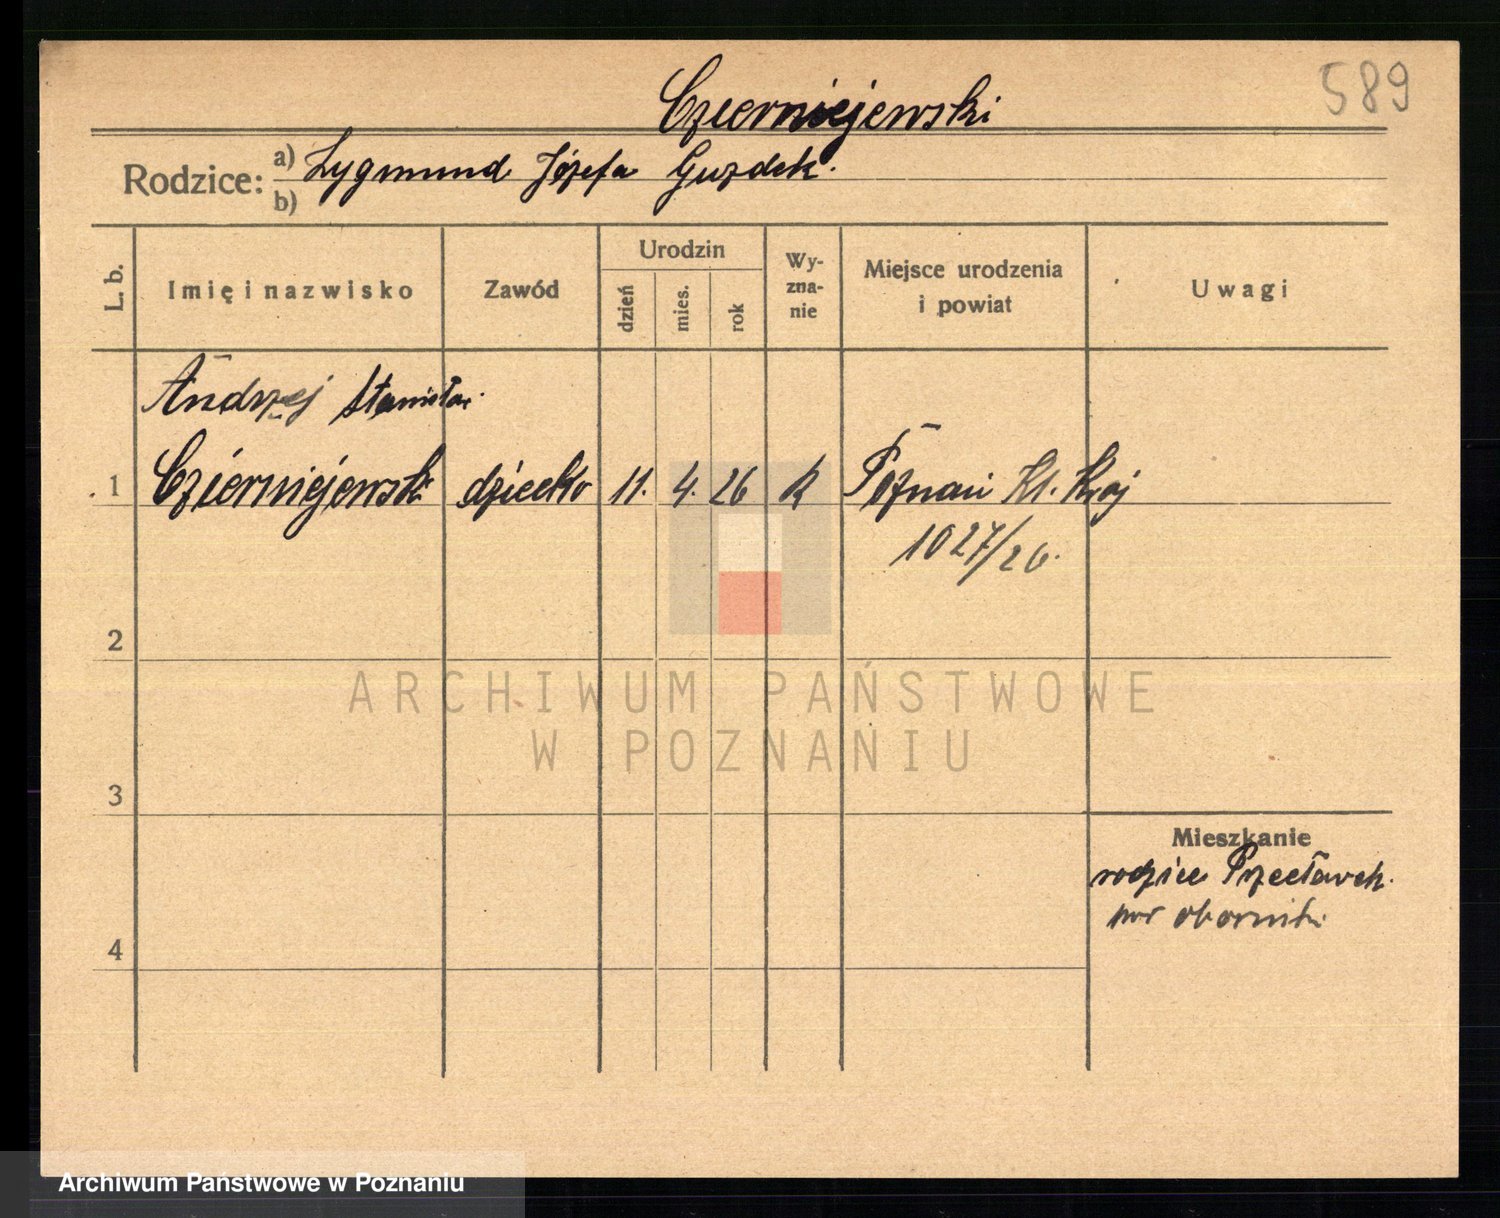 Czierniejewski
589
Rodzice: a) Zygmund Józefa Guzdek.
b)
L. b. Imię i nazwisko Zawód Urodzin dzień mies. rok Wy-zna-nie Miejsce urodzenia i powiat Uwagi
Andrzej Stanisław
1 Czierniejewski dziecko 11. 4. 26 R Poznań Kl. Kraj
1027/26.
2
ARCHIWUM PAŃSTWOWE
W POZNANIU
3
Mieszkanie
rodzice Przecławek
pow oborniki
4
Archiwum Państwowe w Poznaniu